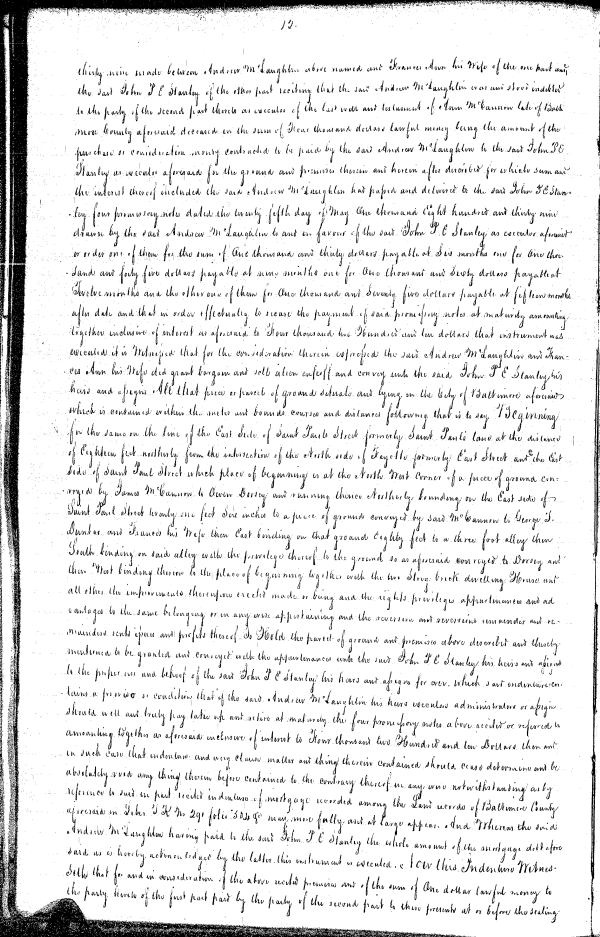 12.
thirty nine made between Andrew McLaughlin above named and Frances Ann his Wife of the one part and
the said John P E Stanley of the other part reciting that the said Andrew McLaughlin was and stood indebted
to the party of the second part thereto as executor of the last will and testament of Ann McCannon late of Balti
more County aforesaid deceased in the sum of Four thousand dollars lawful money being the amount of the
purchase or consideration money contracted to be paid by the said Andrew McLaughlin to the said John P E
Stanley as executor aforesaid for the ground and premises therein and herein after described for which sum and
the interest thereof included the said Andrew McLaughlin had passed and delivered to the said John P E Stan-
ley four promissory notes dated the twenty fifth day of May One thousand Eight hundred and thirty nine
drawn by the said Andrew McLaughlin to and in favour of the said John P E Stanley as executor aforesaid
or order one of them for the sum of One thousand and thirty dollars payable at Six months one for One thou
sand and forty five dollars payable at nine months one for One thousand and Sixty dollars payable at
Twelve months and the other one of them for One thousand and Seventy five dollars payable at fifteen months
after date and that in order effectually to secure the payment of said promissory notes at maturity amounting
together inclusive of interest as aforesaid to Four thousand two Hundred and ten dollars that instrument was
executed it is Witnessed that for the consideration therein expressed the said Andrew McLaughlin and Fran-
ces Ann his Wife did grant bargain and sell alien enfeoff and convey unto the said John P E Stanley his
heirs and assigns All that piece or parcel of ground situate and lying in the City of Baltimore aforesaid
which is contained within the metes and bounds courses and distances following that is to say Beginning
for the same on the line of the East Side of Saint Pauls Street formerly Saint Pauls lane at the distance
of Eighteen feet northerly from the intersection of the North side of Fayette formerly East Street and the East
Side of Saint Paul Street which place of beginning is at the North West Corner of a piece of ground con-
veyed by James McCannon to Owen Dorsey and running thence Northerly bounding on the East side of
Saint Paul Street twenty one feet Six inches to a piece of ground conveyed by said McCannon to George T.
Dunbar and Frances his Wife then East binding on that ground Eighty feet to a three foot alley then
South binding on said alley with the privilege thereof to the ground so as aforesaid conveyed to Dorsey and
then West binding thereon to the place of beginning together with the two Story brick dwelling House and
all other the improvements thereupon erected made or being and the rights privileges appurtenances and ad
vantages to the same belonging or in any wise appertaining and the reversion and reversions remainder and re-
mainders rents issues and profits thereof To Hold the parcel of ground and premises above described and thereby
mentioned to be granted and conveyed with the appurtenances unto the said John P E Stanley his heirs and assigns
to the proper use and behoof of the said John P E Stanley his heirs and assigns for ever. which said indenture con-
tains a proviso or condition that if the said Andrew McLaughlin his heirs executors administrators or assigns
should well and truly pay take up and retire at maturity the four promissory notes above recited or referred to
amounting together as aforesaid inclusive of interest to Four thousand two Hundred and ten Dollars then and
in such case that indenture and every clause matter and thing therein contained should cease determine and be
absolutely void any thing therein before contained to the contrary thereof in any wise notwithstanding as by
reference to said in part recited indenture of mortgage recorded among the Land records of Baltimore County
aforesaid in Liber T K No 290 folio 524 &c may more fully and at large appear. And Whereas the said
Andrew McLaughlin having paid to the said John P E Stanley the whole amount of the mortgage debt afore
said as is hereby acknowledged by the latter this instrument is executed. Now this Indenture Witnes-
seth that for and in consideration of the above recited premises and of the sum of One dollar lawful money to
the party hereto of the first part paid by the party of the second part to these presents at or before the sealing